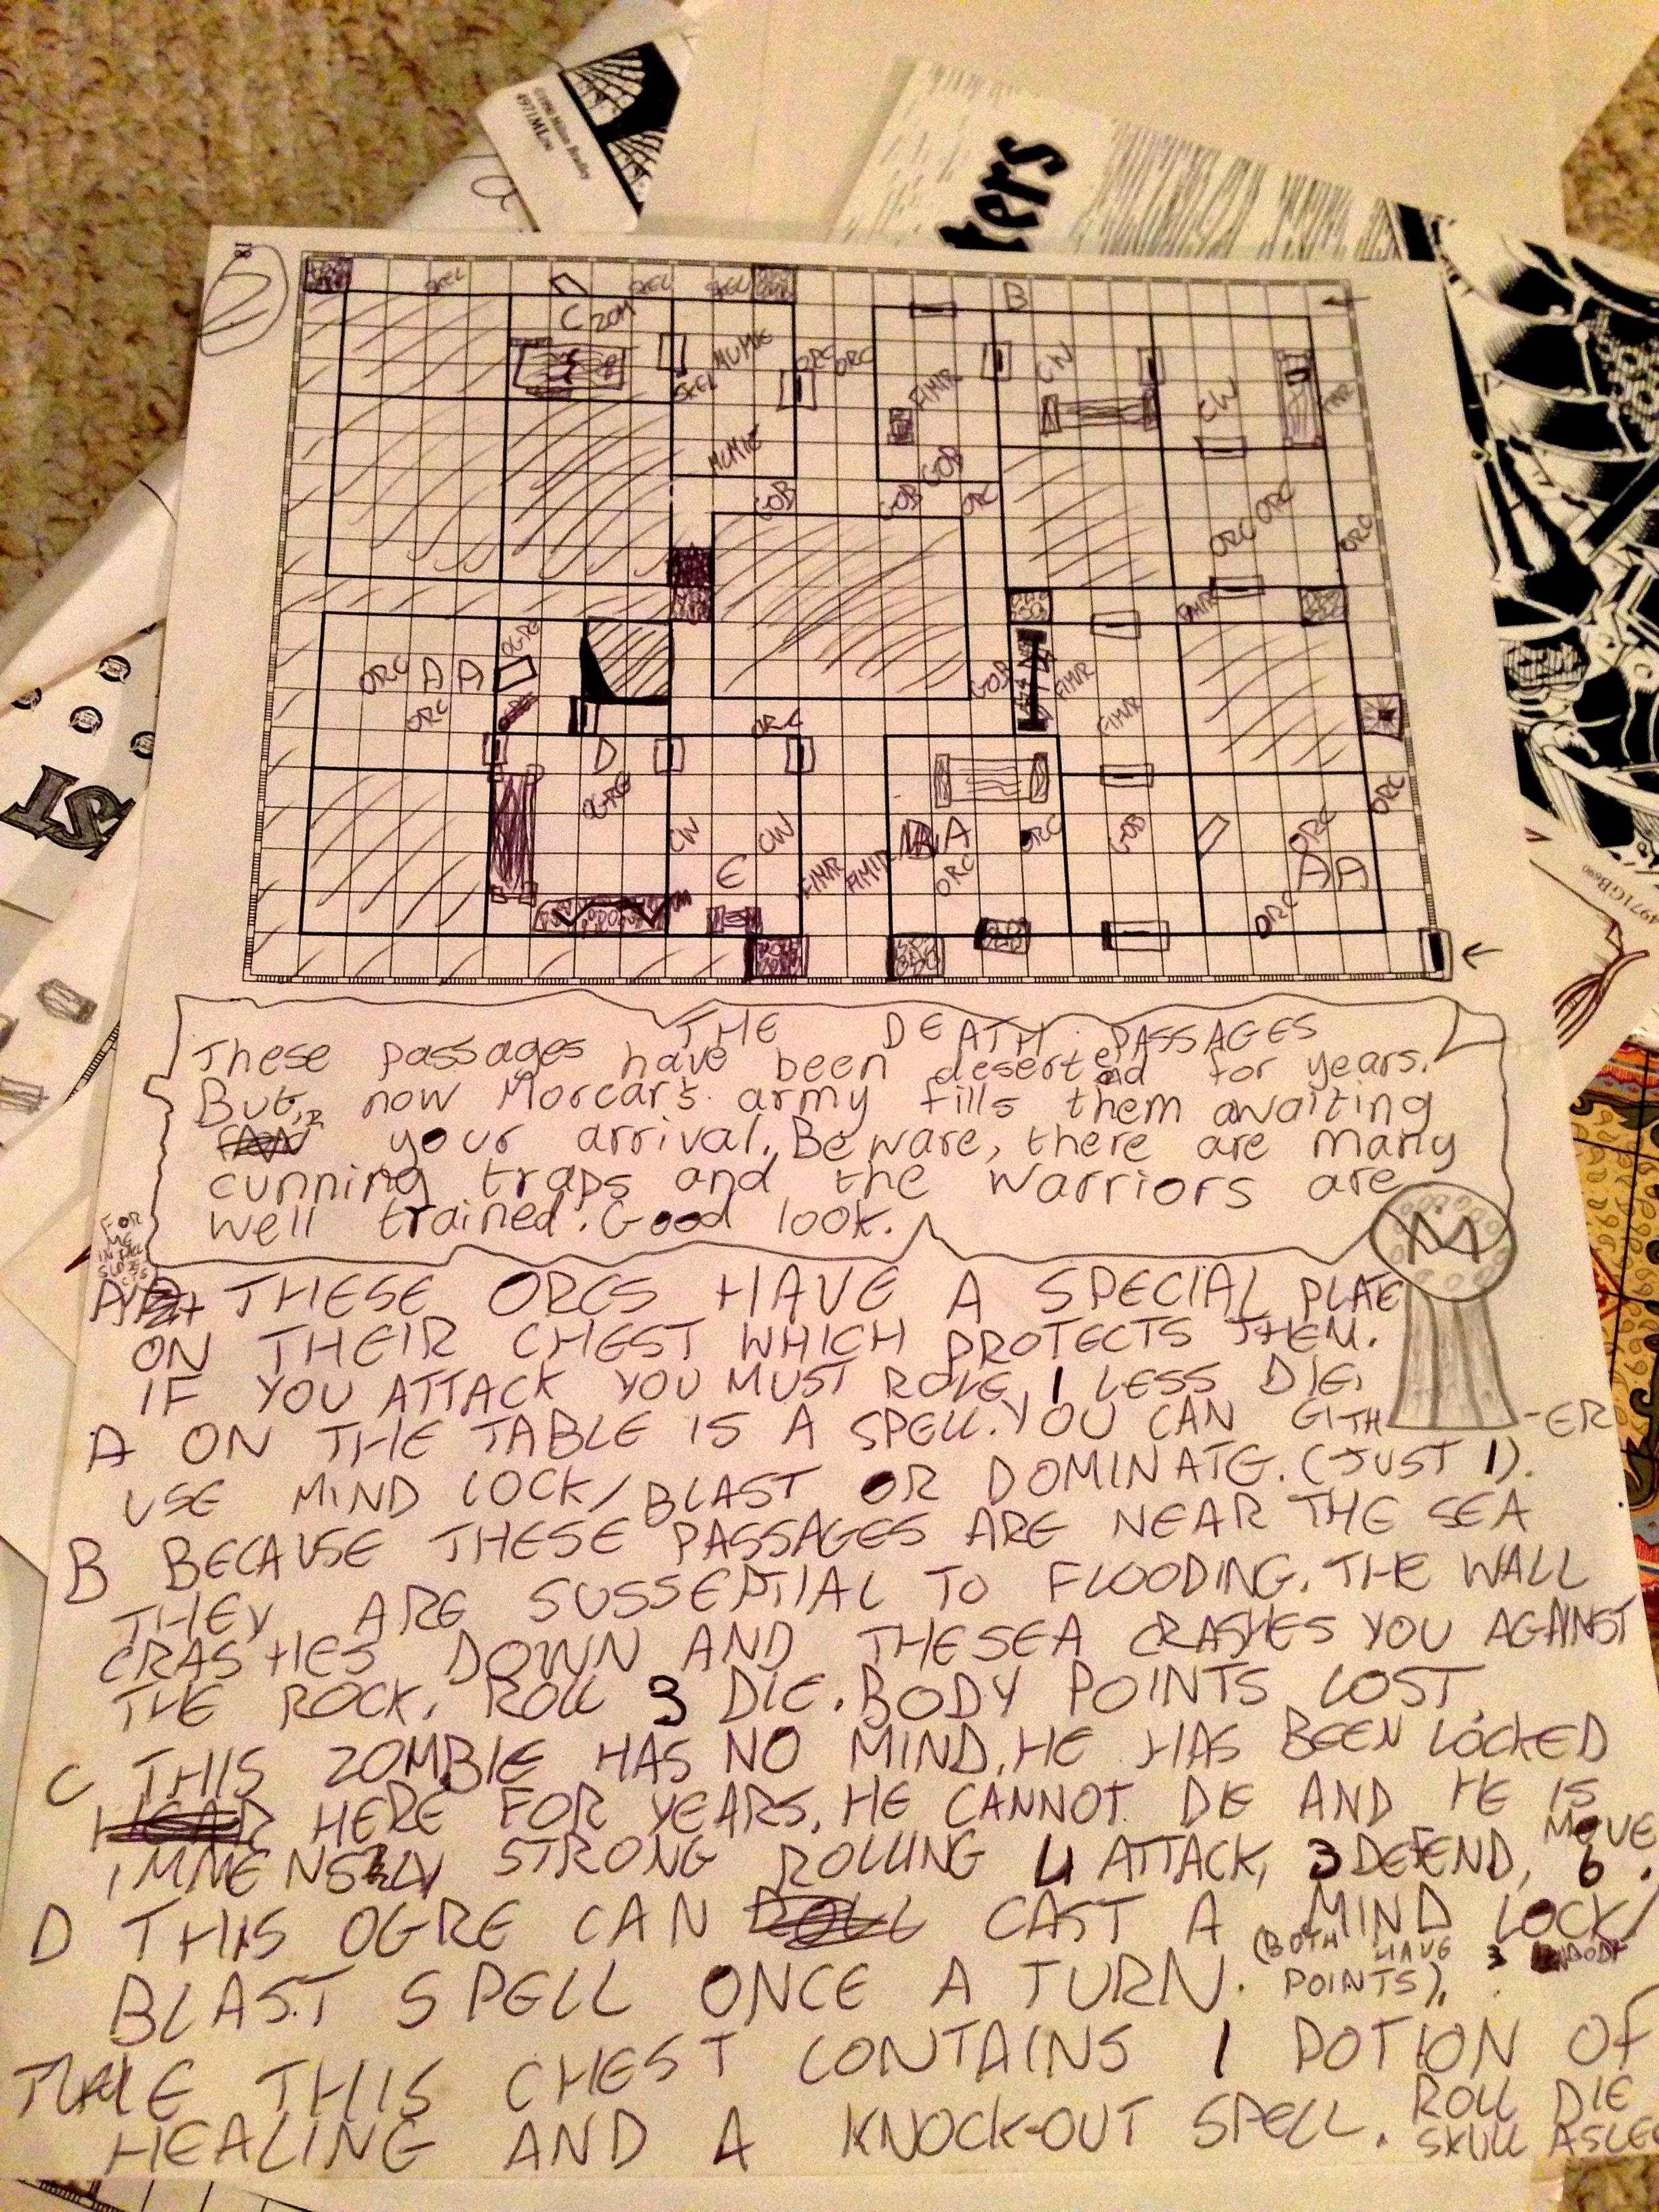 ©1990 Milton Bradley
4971MLæ
ters
IST
4971GB
2
SKEL
SKEL
SKEL
B
C ZOM
MUMIE
SKEL
ORC
ORC
FIMIR
CW
CW
MUMIE
GOB
GOB
GOB
ORC
ORC
ORC
ORC
FIMIR
OGRE
ORC A A
ORC
GOB
FIMIR
FIMIR
ORC
D
OGRE
CW
CW
E
FIMIR
FIMIR
A
ORC
ORC
GOB
ORC
ORC
A A
ORC
THE DEATH PASSAGES
These passages have been deserted for years.
But, now Morcar's army fills them awaiting
your arrival. Beware, there are many
cunning traps and the warriors are
well trained. Good look.
M
FOR
A THESE ORCS HAVE A SPECIAL PLATE
ON THEIR CHEST WHICH PROTECTS THEM.
IF YOU ATTACK YOU MUST ROLE 1 LESS DIE.
A ON THE TABLE IS A SPELL. YOU CAN EITH-ER
USE MIND LOCK/BLAST OR DOMINATE. (JUST 1).
B BECAUSE THESE PASSAGES ARE NEAR THE SEA
THEY ARE SUSSEPTIAL TO FLOODING. THE WALL
CRASHES DOWN AND THE SEA CRASHES YOU AGAINST
THE ROCK. ROLL 3 DIE. BODY POINTS LOST
C THIS ZOMBIE HAS NO MIND. HE HAS BEEN LOCKED
HERE FOR YEARS. HE CANNOT DIE AND HE IS
IMMENSLY STRONG ROLLING 4 ATTACK, 3 DEFEND, MOVE 6.
D THIS OGRE CAN CAST A MIND LOCK/
BLAST SPELL ONCE A TURN. (BOTH HAVE 3
POINTS).
E THIS CHEST CONTAINS 1 POTION OF
HEALING AND A KNOCK-OUT SPELL. ROLL DIE
SKULL